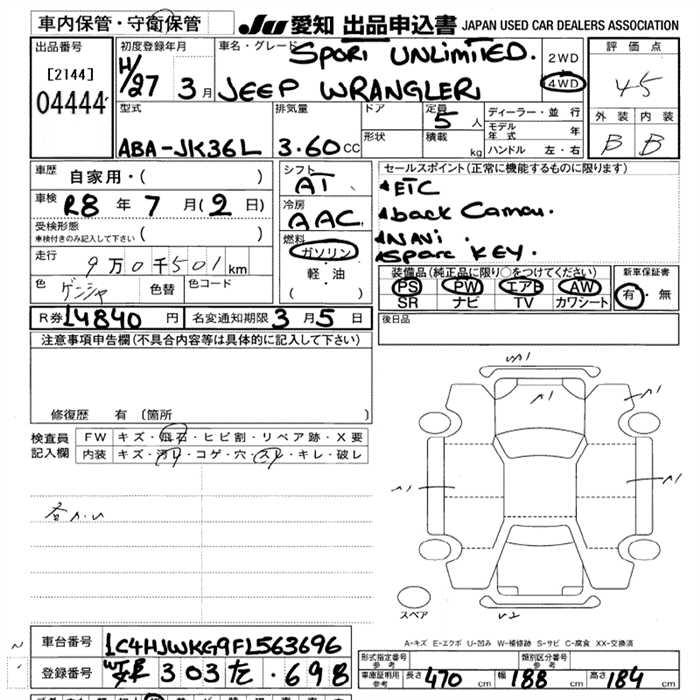 車内保管・守衛保管
JU 愛知 出品申込書 JAPAN USED CAR DEALERS ASSOCIATION
出品番号
[2144]
04444
初度登録年月
H/27 3月
車名・グレード
SPORT UNLIMITED.
JEEP WRANGLER
2WD
4WD
評価点
4.5
外装 内装
B B
型式
ABA-JK36L
排気量
3.60 CC
ドア
形状
定員
5人
積載
kg
ディーラー・並行
モデル年式 年
ハンドル 左・右
車歴
自家用・( )
車検
R8年7月(2日)
受検形態
車検付きのみ記入して下さい ( )
走行
9万0千501km
色
色替
色コード
シフト
AT
冷房
AAC
燃料
ガソリン
軽・油
( )
セールスポイント(正常に機能するものに限ります)
ETC
back
NAVi
KEY.
装備品(純正品に限り○をつけてください)
PS PW エアB AW
SR ナビ TV カワシート
新車保証書
有・無
R券 14840 円
名変通知期限 3月5日
後日品
注意事項申告欄(不具合内容等は具体的に記入して下さい)
修復歴 有 〔箇所 〕
検査員
記入欄
FW キズ・飛石・ヒビ割・リペア跡・X要
内装 キズ・汚レ・コゲ・穴・スレ・キレ・破レ
スペア
A-キズ E-エクボ U-凹み W-補修跡 S-サビ C-腐食 XX-交換済
車台番号
1C4HJWKG9FL563696
登録番号
303 698
形式指定番号
参考
類別区分番号
参考
車庫証明用
参考
長さ 470 cm
幅 188 cm
高さ 184 cm